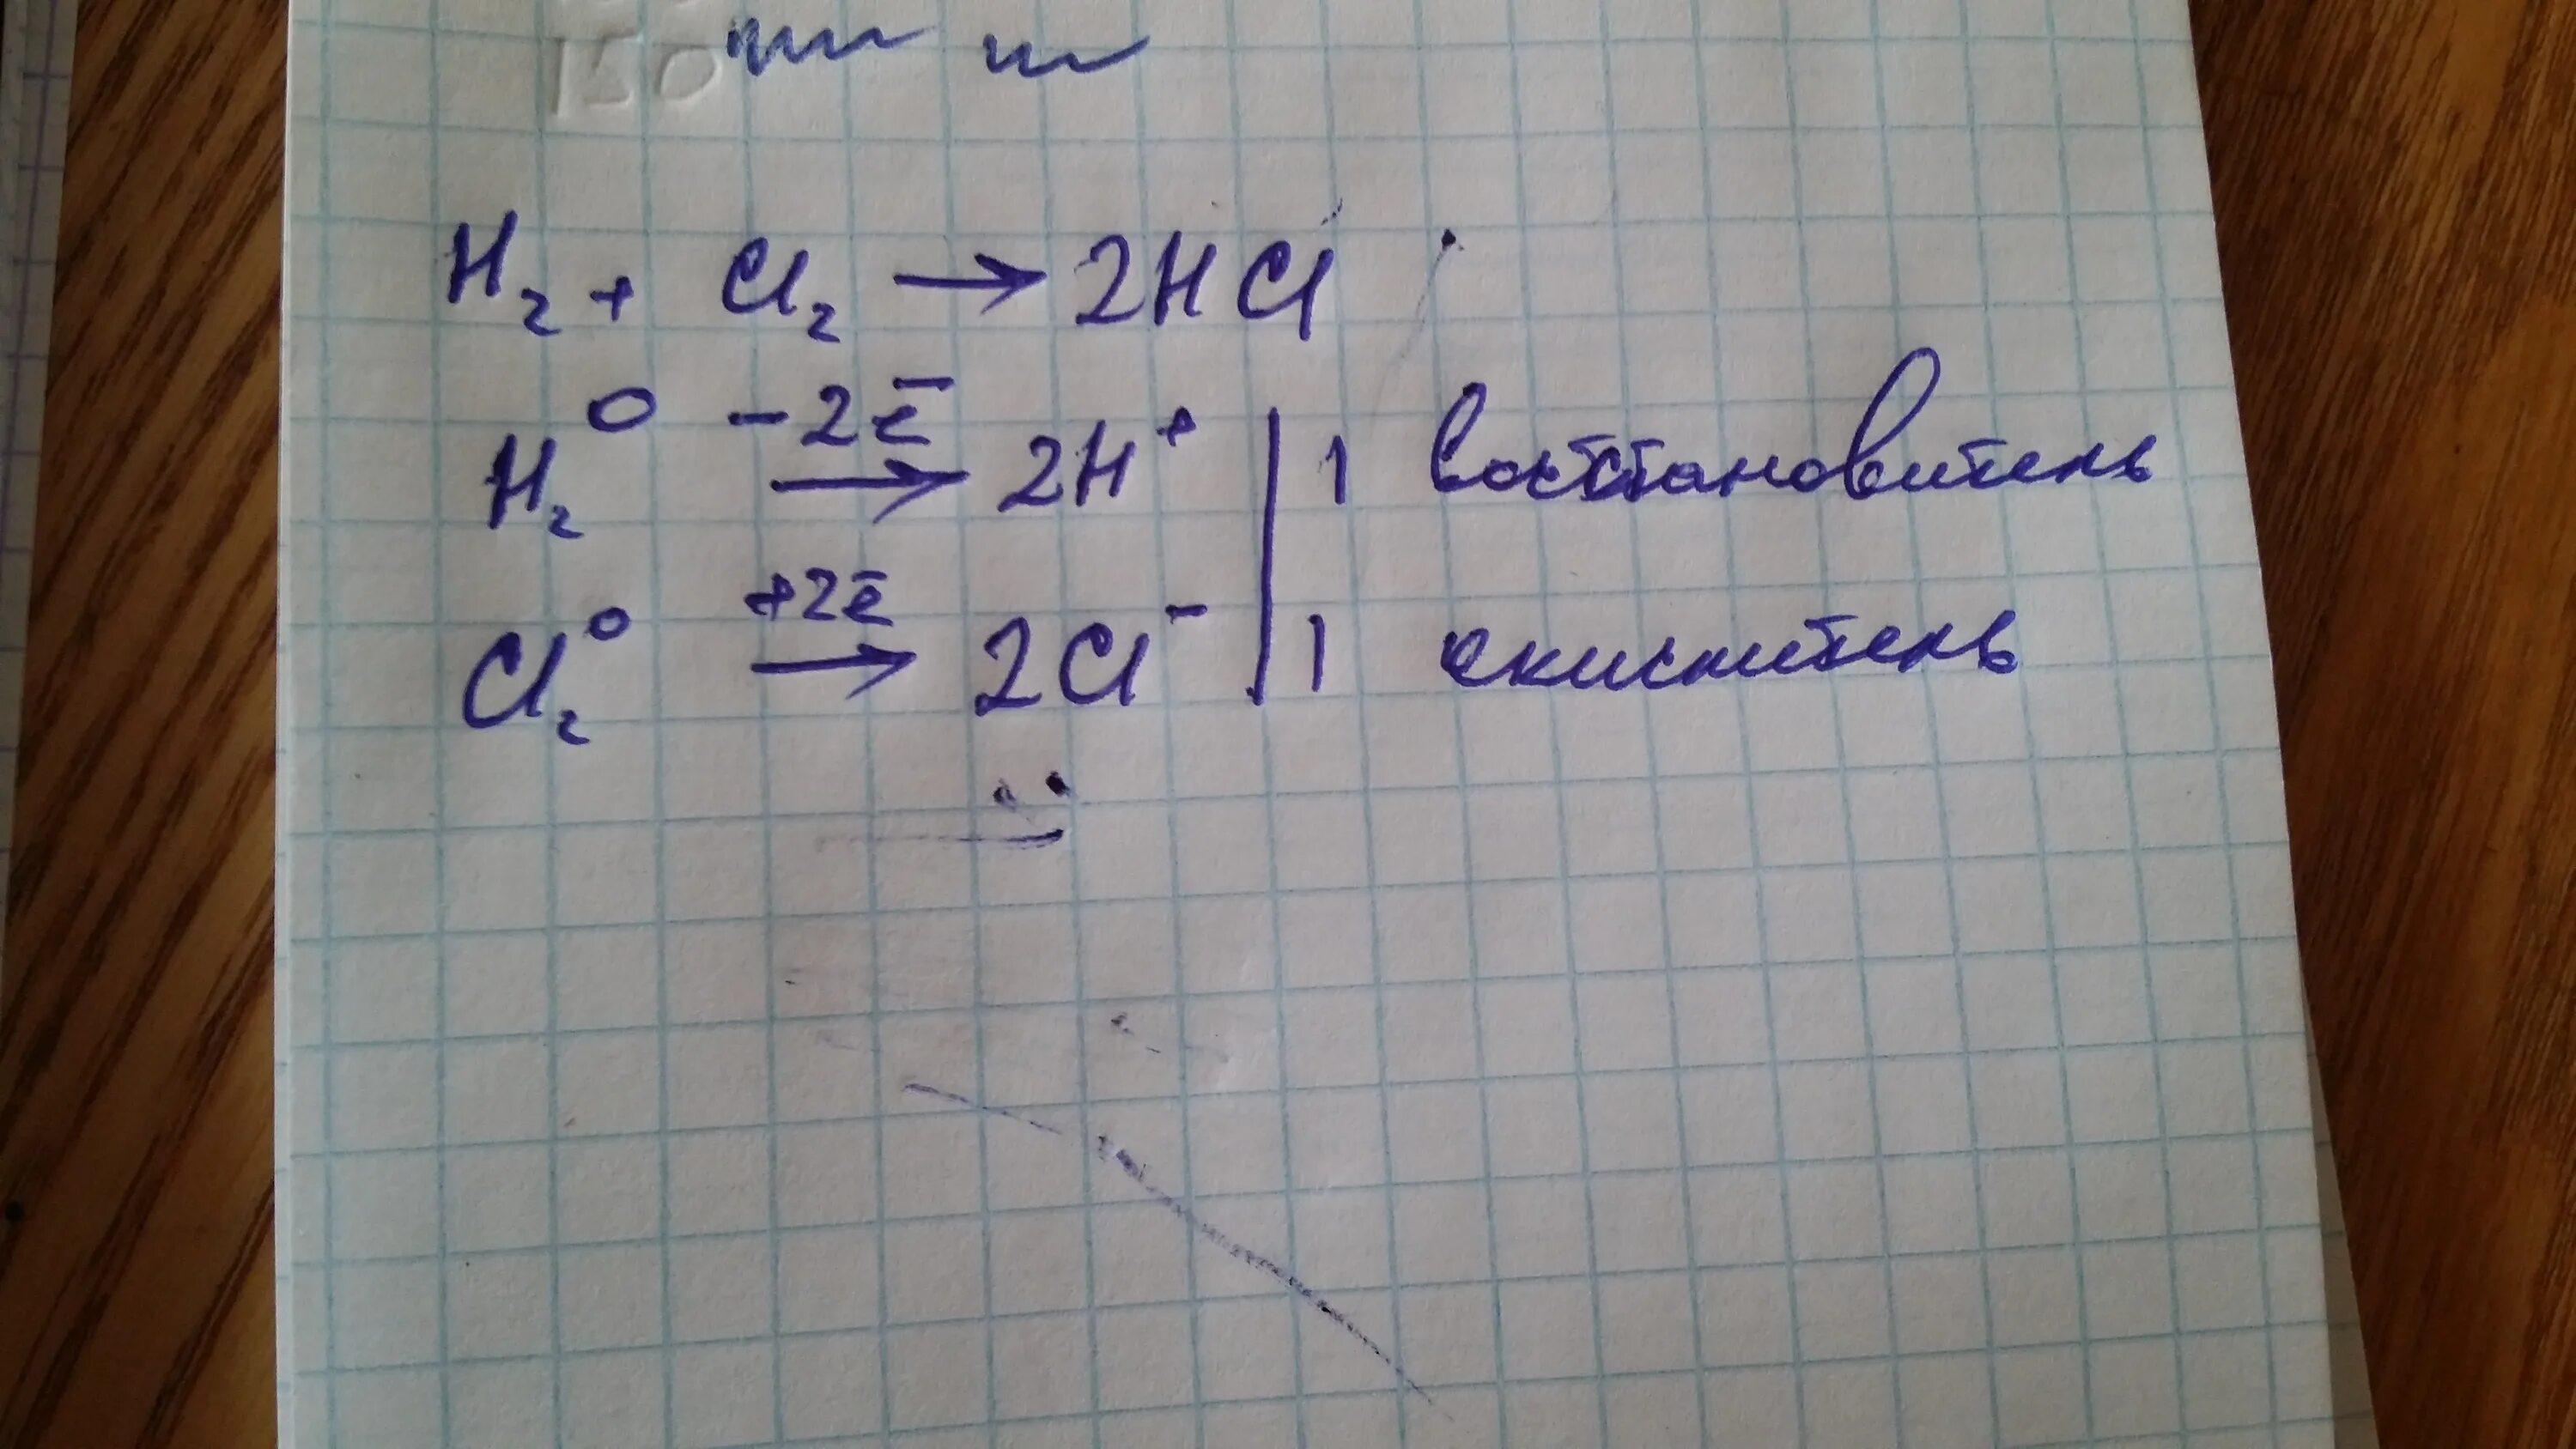 H₂ + Cl₂ → 2HCl
H₂⁰ -2ē → 2H⁺ | 1 восстановитель
Cl₂⁰ +2ē → 2Cl⁻ | 1 окислитель